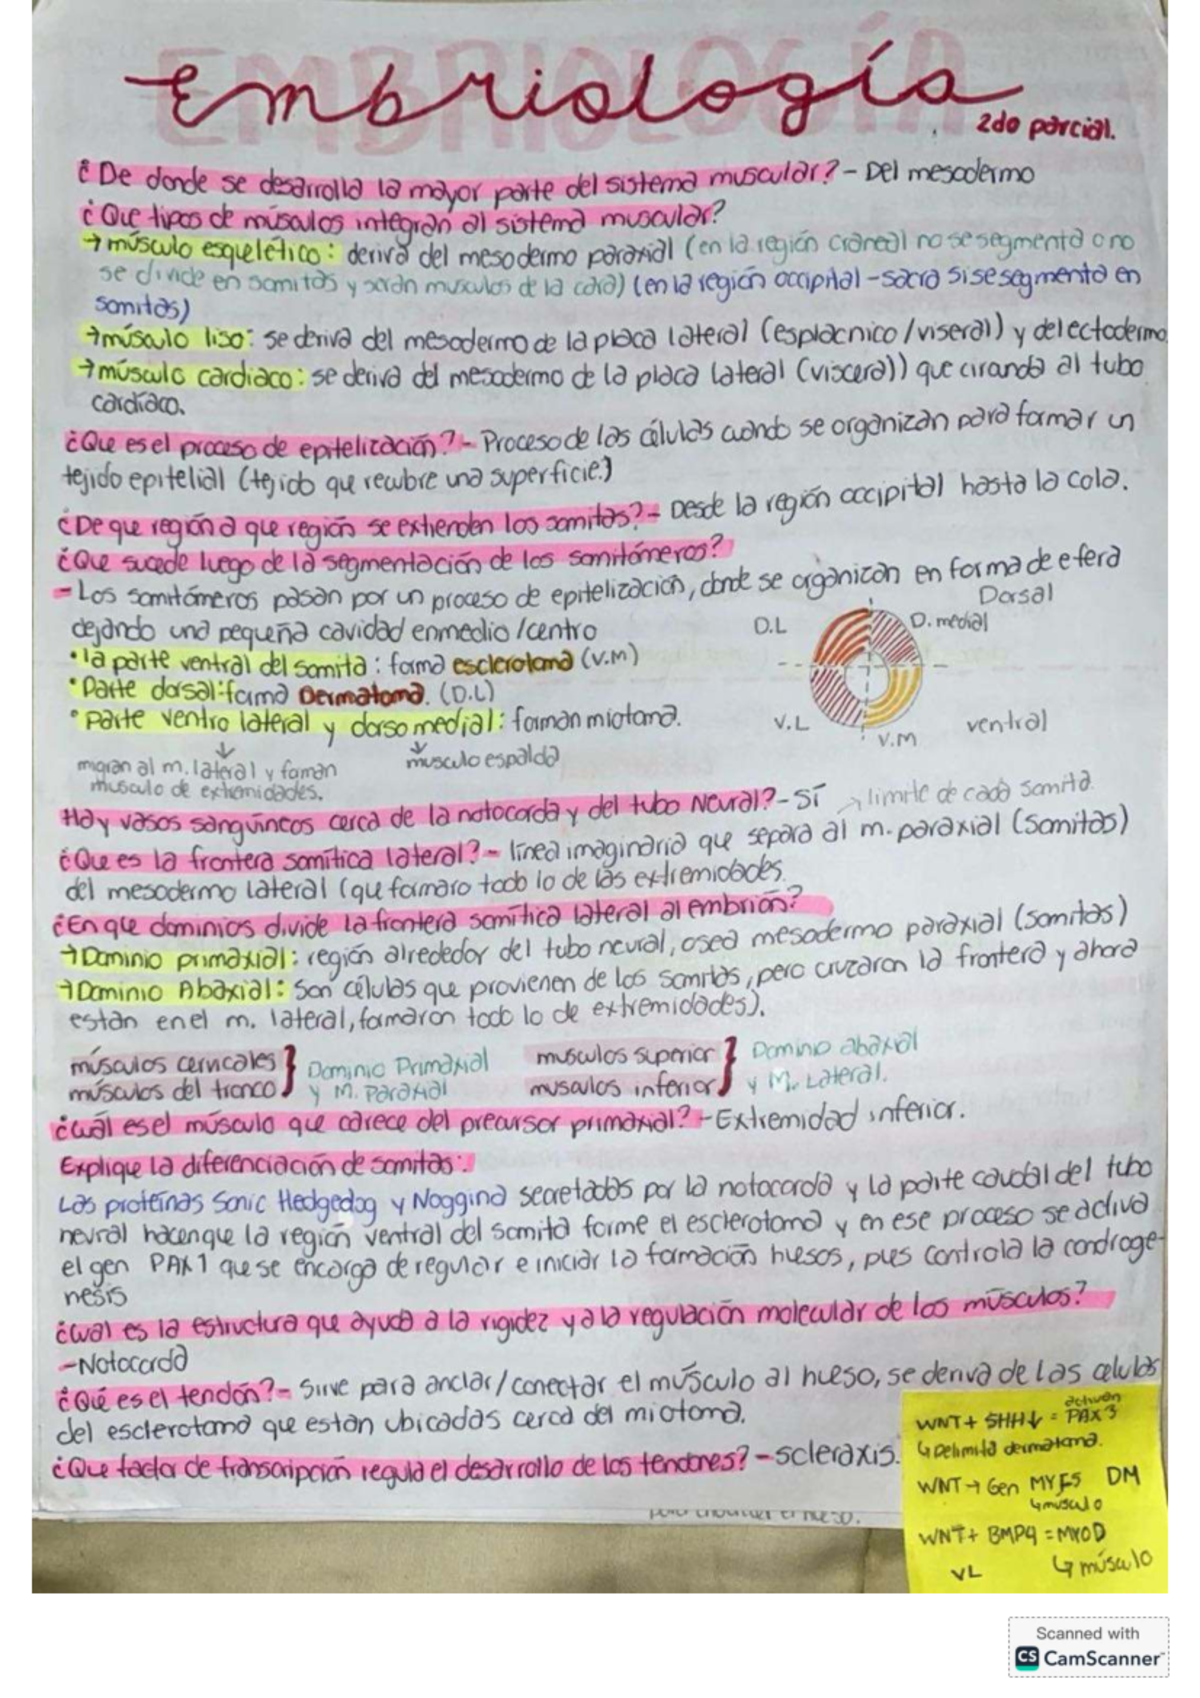 EMBRIOLOGÍA
Embriología
2do parcial.
¿De donde se desarrolla la mayor parte del sistema muscular? - Del mesodermo
¿Que tipos de músculos integran al sistema muscular?
→ músculo esquelético: deriva del mesodermo paraxial (en la región craneal no se segmenta o no
se divide en somitas y serán musculos de la cara) (en la región occipital - sacra si se segmenta en
somitas)
→ músculo liso: se deriva del mesodermo de la placa lateral (esplacnico/viseral) y del ectodermo
→ músculo cardiaco: se deriva del mesodermo de la placa lateral (visceral) que ciranda al tubo
cardíaco.
¿Que es el proceso de epitelización? - Proceso de las células cuando se organizan para formar un
tejido epitelial (tejido que recubre una superficie.)
¿De que región a que región se extienden los somitas? - Desde la región occipital hasta la cola.
¿Que sucede luego de la segmentación de los somitómeros?
- Los somitómeros pasan por un proceso de epitelización, donde se organizan en forma de efera
dejando una pequeña cavidad enmedio/centro
Dorsal
D.L
D. medial
• la parte ventral del somita: forma esclerotoma (V.M)
• Parte dorsal: forma Dermatoma. (D.L)
• Parte ventro lateral y dorso medial: forman miotoma.
V.L
V.M
ventral
migran al m. lateral y forman
musculo de extremidades.
musculo espalda
Hay vasos sanguineos cerca de la notocorda y del tubo Neural? - Sí
→ limite de cada somita.
¿Que es la frontera somitica lateral? - línea imaginaria que separa al m. paraxial (somitas)
del mesodermo lateral (que formara todo lo de las extremidades.
¿En que dominios divide la frontera somitica lateral al embrión?
→ Dominio primaxial: región alrededor del tubo neural, osea mesodermo paraxial (somitas)
→ Dominio Abaxial: son células que provienen de los somitas, pero cruzaron la frontera y ahora
están en el m. lateral, formaron todo lo de extremidades).
músculos cervicales
músculos del tronco
} Dominio Primaxial
y M. Paraxial
musculos superior
musculos inferior
} Dominio abaxial
y M. Lateral.
¿Cuál es el músculo que carece del precursor primaxial? - Extremidad inferior.
Explique la diferenciación de somitas:
Las proteínas Sonic Hedgedog y Noggina secretadas por la notocorda y la parte caudal del tubo
neural hacen que la región ventral del somita forme el esclerotoma y en ese proceso se activa
el gen PAX1 que se encarga de regular e iniciar la formación huesos, pues controla la condroge-
nesis
¿Cual es la estructura que ayuda a la rigidez y a la regulación molecular de los músculos?
- Notocorda
¿Qué es el tendón? - Sirve para anclar/conectar el músculo al hueso, se deriva de las celulas
del esclerotoma que estan ubicadas cerca del miotoma.
¿Que factor de transcripción regula el desarrollo de los tendones? - scleraxis.
activan
WNT + SHH↓ = PAX3
↳ Delimita dermatoma.
WNT → Gen MYF5 DM
↳ musculo
WNT + BMP4 = MYOD
VL ↳ músculo
Scanned with
CS CamScanner